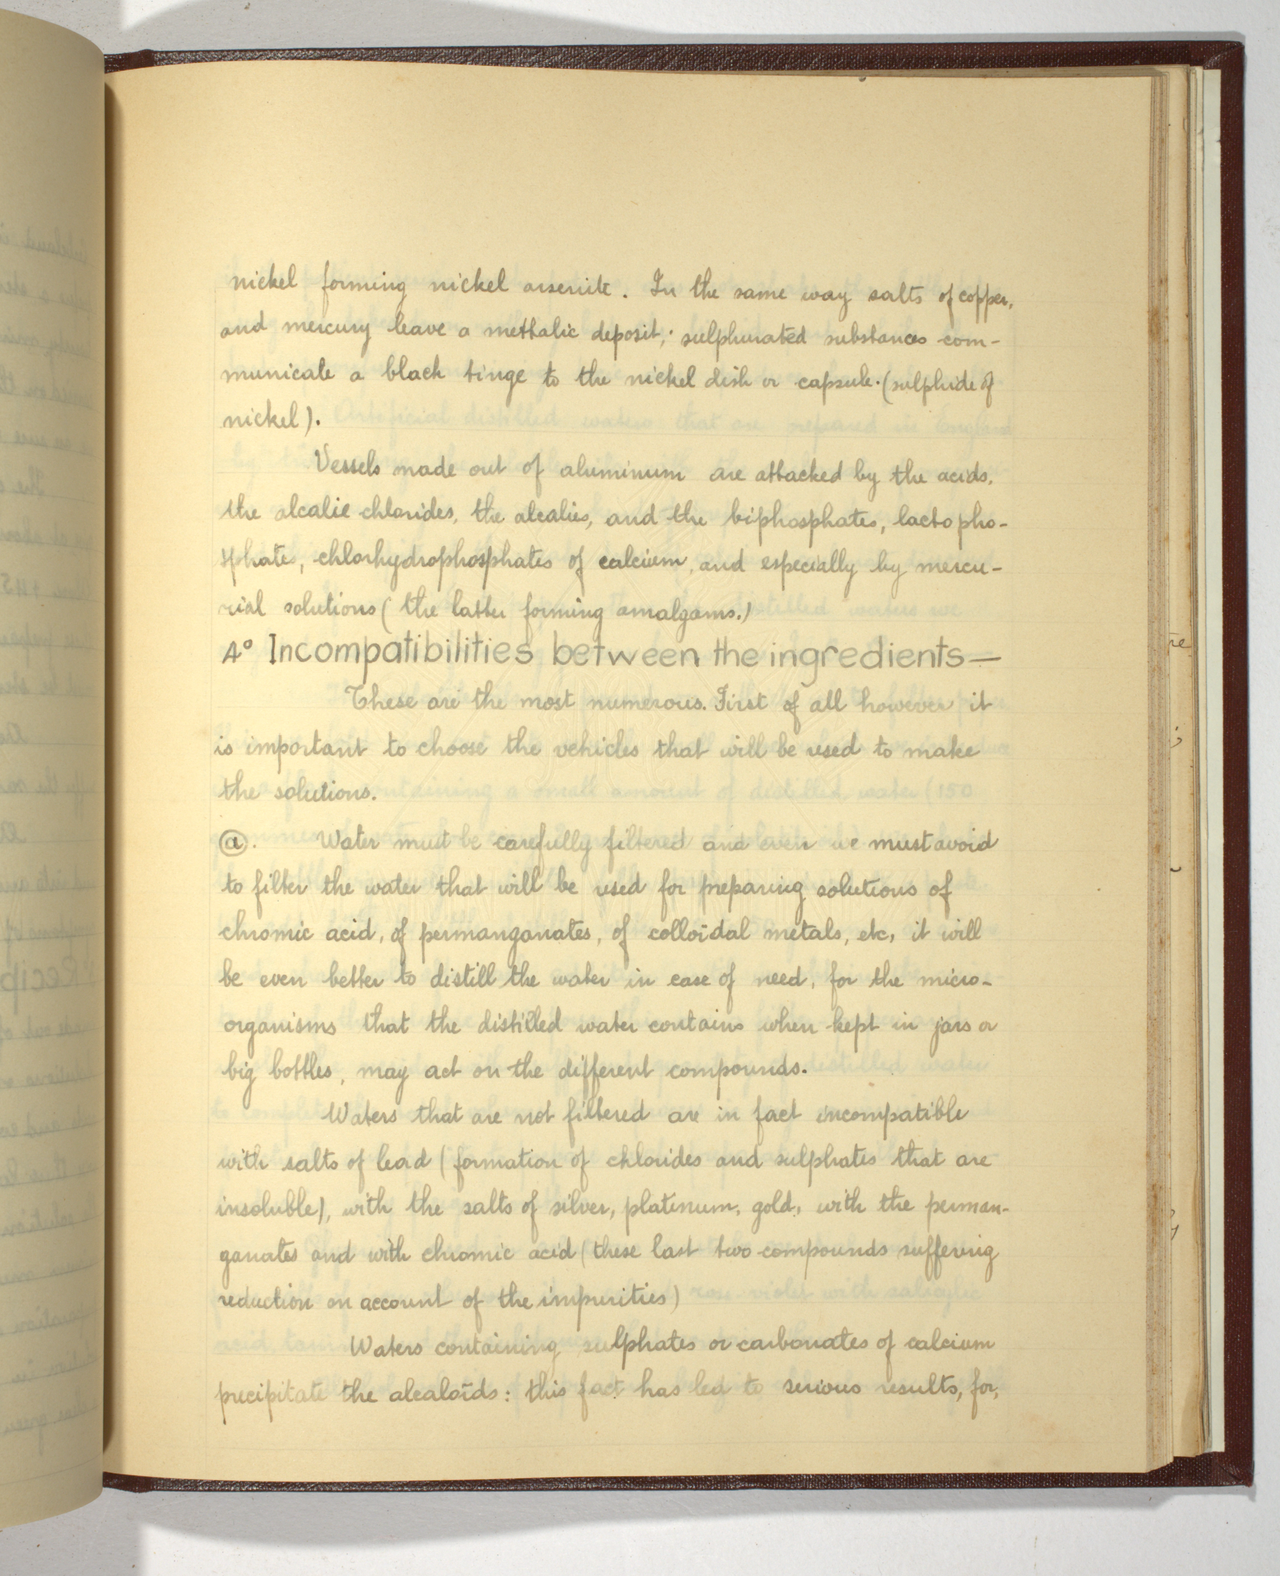 nickel forming nickel arsenite. In the same way salts of copper,
and mercury leave a methalic deposit; sulphurated substances com-
municate a black tinge to the nickel dish or capsule. (sulphide of
nickel).
Vessels made out of aluminum are attacked by the acids,
the alcalie chlorides, the alcalies, and the biphosphates, lactopho-
sphates, chlorhydrophosphates of calcium, and especially by mercu-
rial solutions (the latter forming amalgams.)
4° Incompatibilities between the ingredients—
These are the most numerous. First of all however it
is important to choose the vehicles that will be used to make
the solutions.
ⓐ. Water must be carefully filtered and even we must avoid
to filter the water that will be used for preparing solutions of
chromic acid, of permanganates, of colloïdal metals, etc, it will
be even better to distill the water in case of need, for the micro-
organisms that the distilled water contains when kept in jars or
big bottles, may act on the different compounds.
Waters that are not filtered are in fact incompatible
with salts of lead (formation of chlorides and sulphates that are
insoluble), with the salts of silver, platinum, gold, with the perman-
ganates and with chromic acid (these last two compounds suffering
reduction on account of the impurities)
Waters containing sulphates or carbonates of calcium
precipitate the alcaloïds: this fact has led to serious results, for,